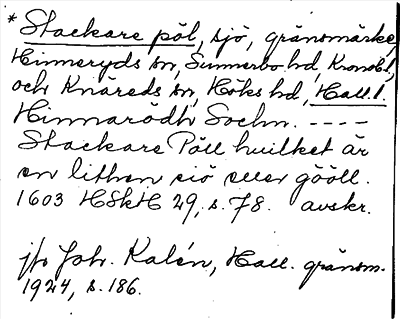 * Stackare pöl, sjö, gränsmärke,
Hinneryds sn, Sunnerbo hd, Kronob.l,
och Knäreds sn, Höks hd, Hall.l.
Hinnarödh Sochn. ----
Stackare Pöll huilket är
en lithen siö eller gööll.
1603 HSkH 29, s. 78. avskr.
jfr Joh. Kalén, Hall. gränsm.
1924, s. 186.